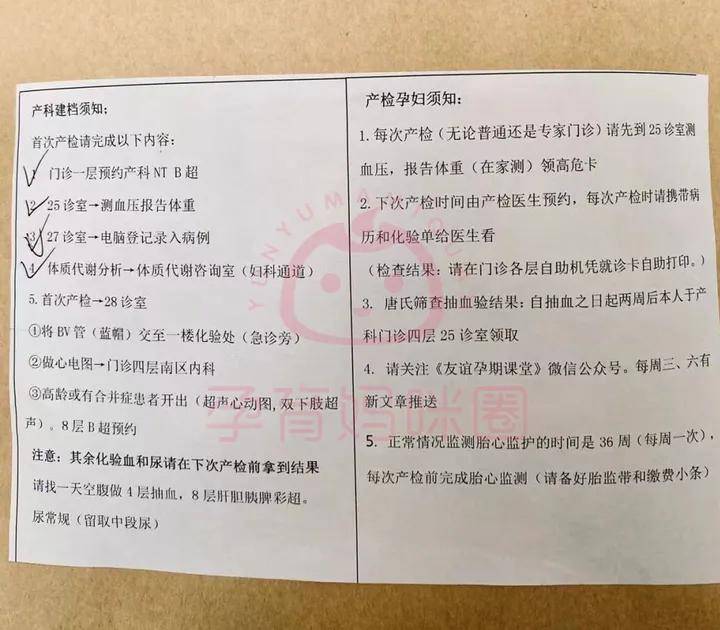 产科建档须知:
首次产检请完成以下内容:
1 门诊一层预约产科 NT B 超
2 25 诊室→测血压报告体重
3 27 诊室→电脑登记录入病例
4 体质代谢分析→体质代谢咨询室(妇科通道)
5.首次产检→28 诊室
①将 BV 管(蓝帽)交至一楼化验处(急诊旁)
②做心电图→门诊四层南区内科
③高龄或有合并症患者开出(超声心动图,双下肢超
声)。8 层 B 超预约
注意:其余化验血和尿请在下次产检前拿到结果
请找一天空腹做 4 层抽血,8 层肝胆胰脾彩超。
尿常规(留取中段尿)
产检孕妇须知:
1.每次产检(无论普通还是专家门诊)请先到 25 诊室测
血压,报告体重(在家测)领高危卡
2.下次产检时间由产检医生预约,每次产检时请携带病
历和化验单给医生看
(检查结果:请在门诊各层自助机凭就诊卡自助打印。)
3. 唐氏筛查抽血验结果:自抽血之日起两周后本人于产
科门诊四层 25 诊室领取
4. 请关注《友谊孕期课堂》微信公众号。每周三、六有
新文章推送
5. 正常情况监测胎心监护的时间是 36 周(每周一次),
每次产检前完成胎心监测(请备好胎监带和缴费小条)
YUNYUMAMIQUAN
孕育妈咪圈